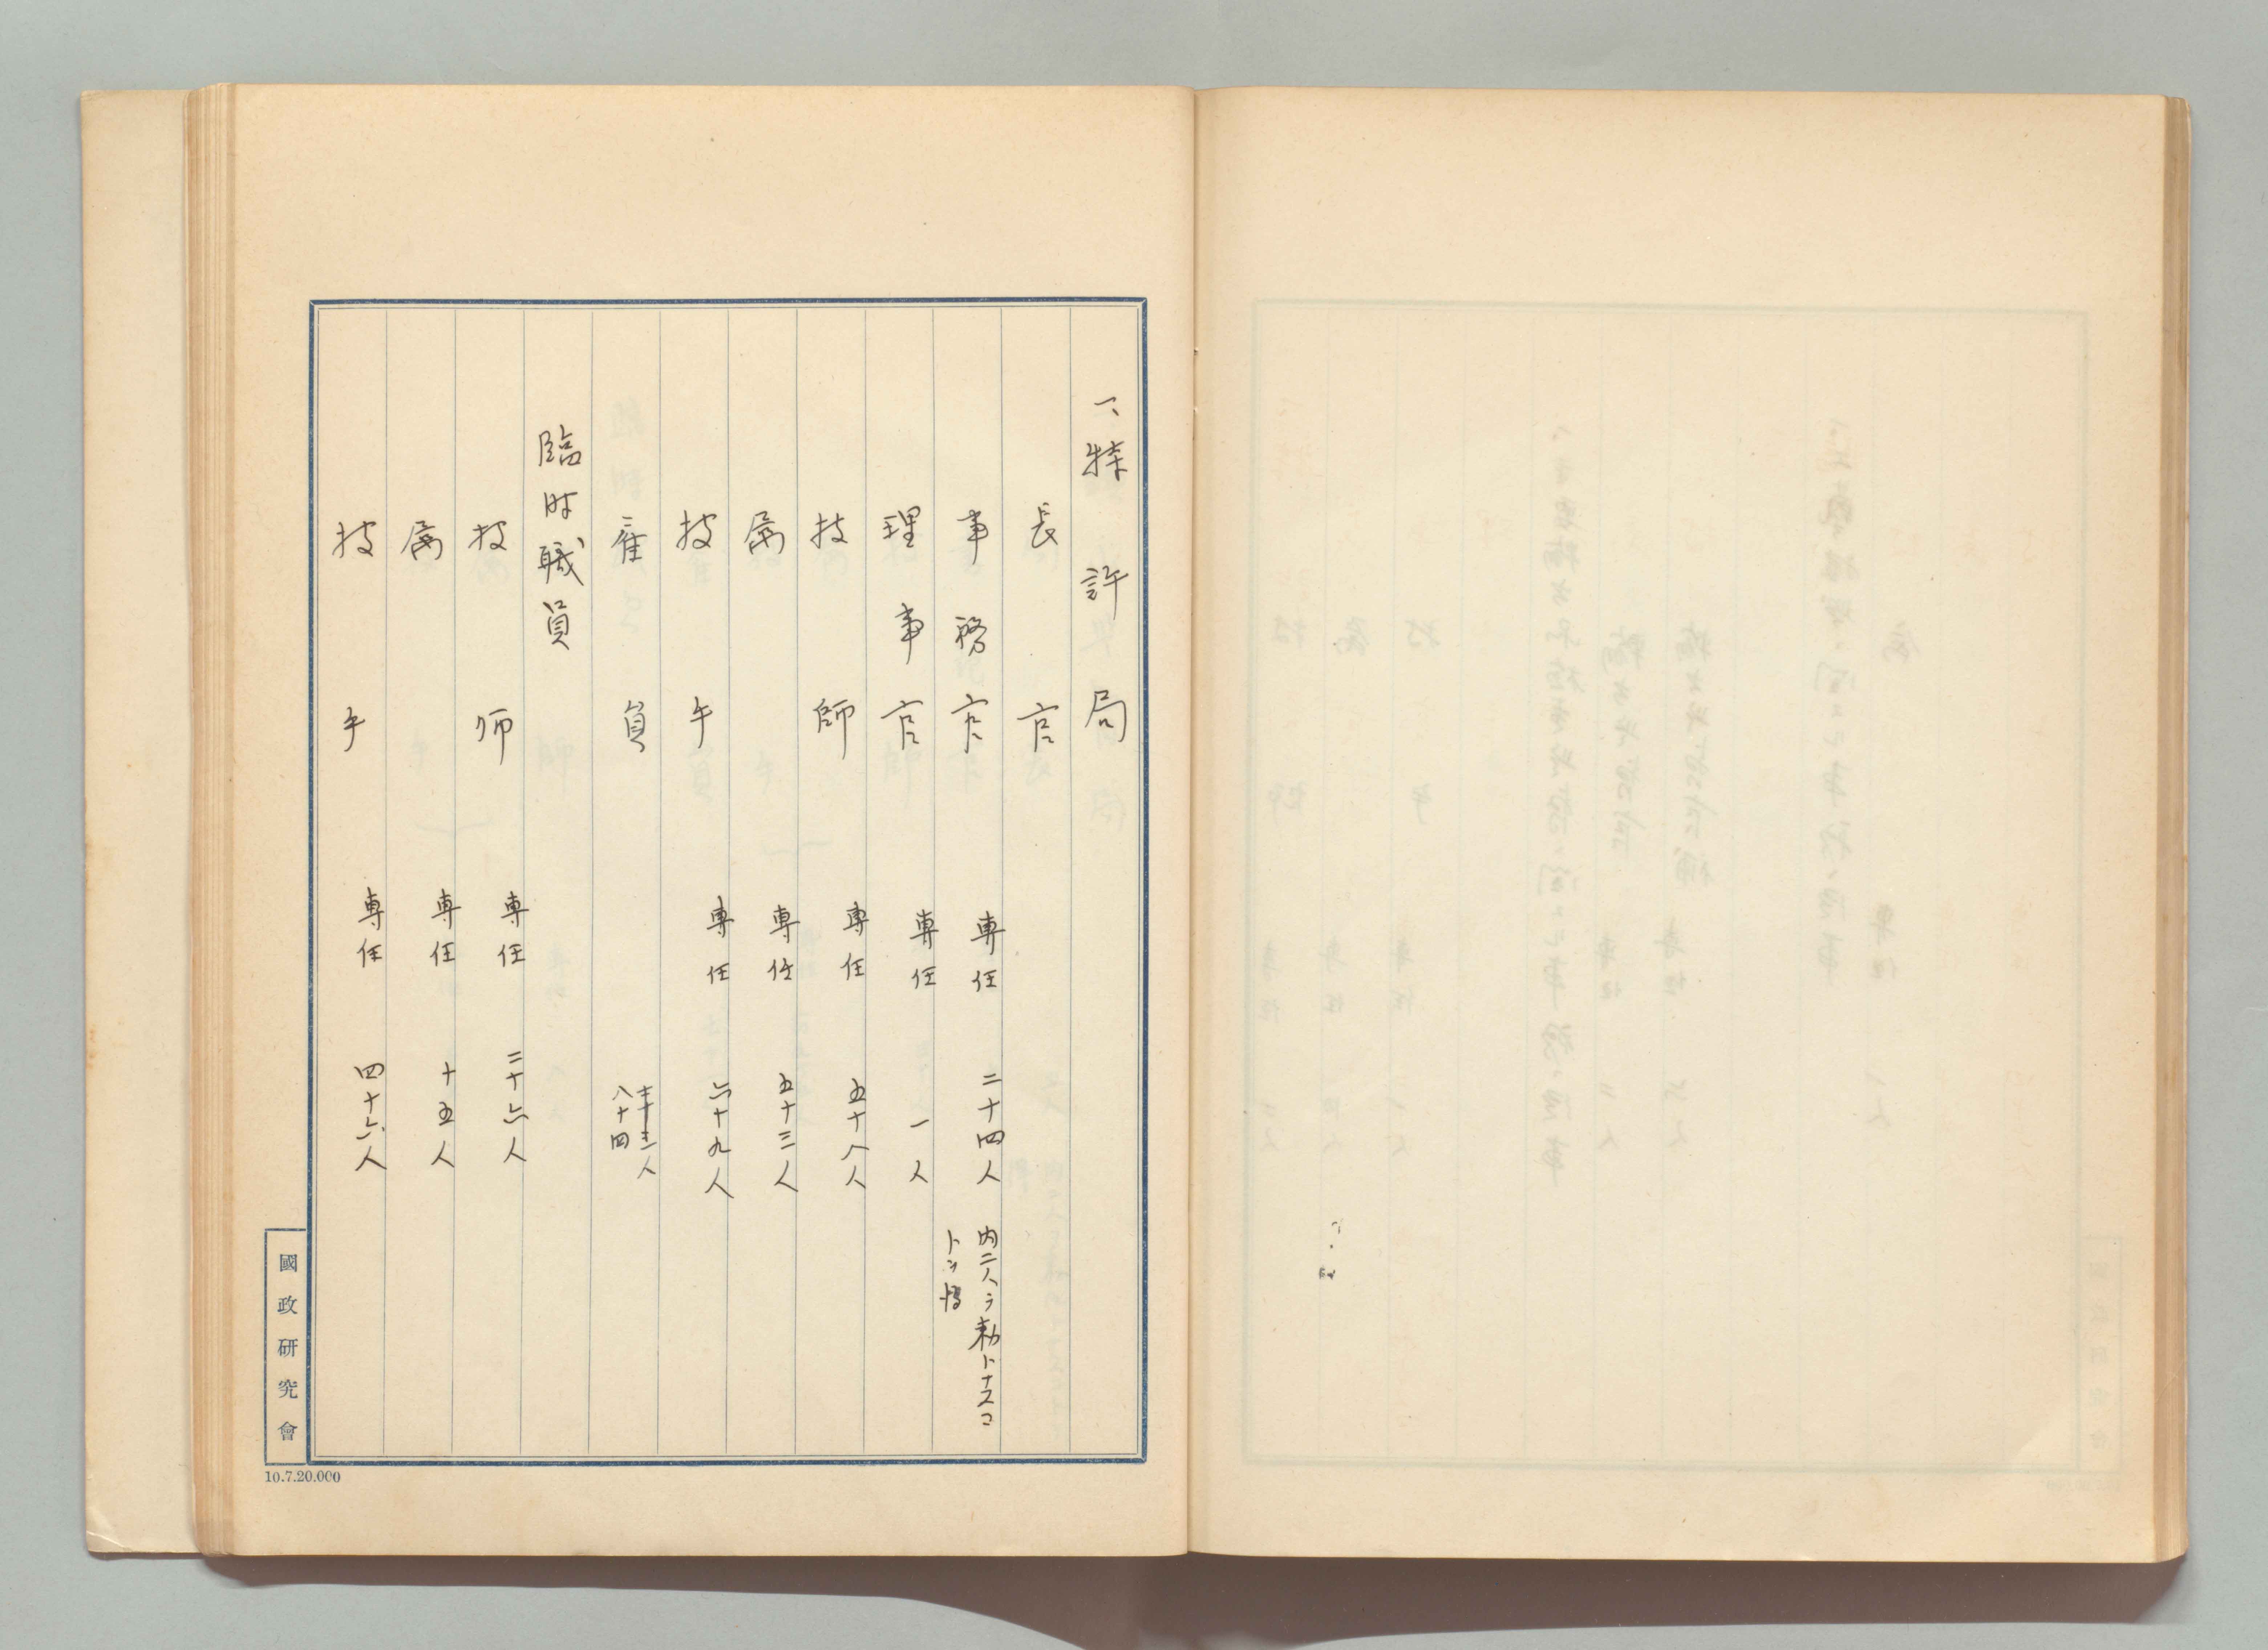 一、特許局
長官
事務官 専任 二十四人 内二人ヲ勅トナスコ
トヲ得
理事官 専任 一人
技師 専任 五十八人
属 専任 五十三人
技手 専任 六十九人
雇員 人
八十四
臨時職員
技師 専任 二十六人
属 専任 十五人
技手 専任 四十六人
國政研究會
10.7.20.000